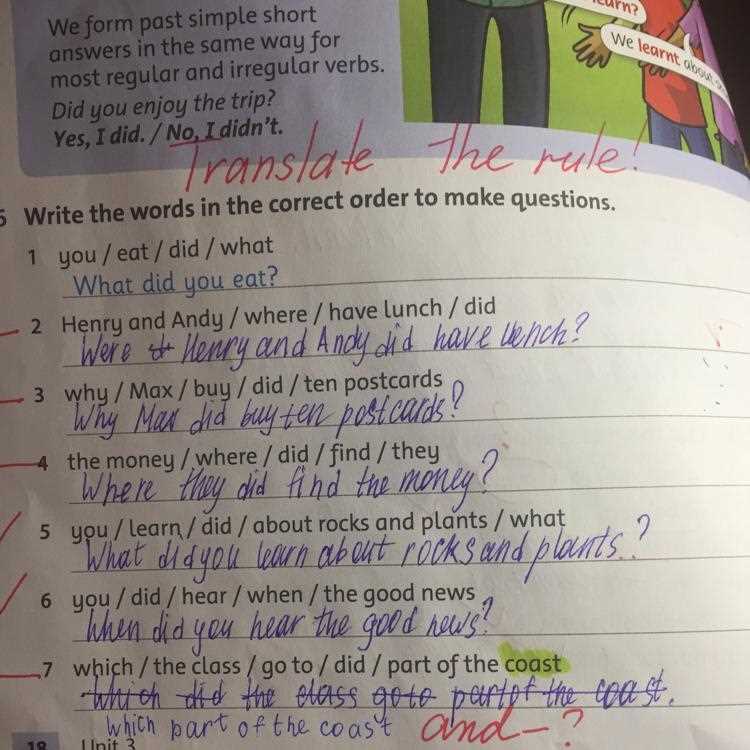 We form past simple short
answers in the same way for
most regular and irregular verbs.
Did you enjoy the trip?
Yes, I did. / No, I didn't.
We learnt about
Translate the rule!
Write the words in the correct order to make questions.
1 you / eat / did / what
What did you eat?
2 Henry and Andy / where / have lunch / did
Were Henry and Andy did have lench?
3 why / Max / buy / did / ten postcards
Why Max did buy ten postcards?
4 the money / where / did / find / they
Where they did find the money?
5 you / learn / did / about rocks and plants / what
What did you learn about rocks and plants.?
6 you / did / hear / when / the good news
When did you hear the good news?
7 which / the class / go to / did / part of the coast
Which did the class go to part of the coast.
Which part of the coast and - ?
18 Unit 3